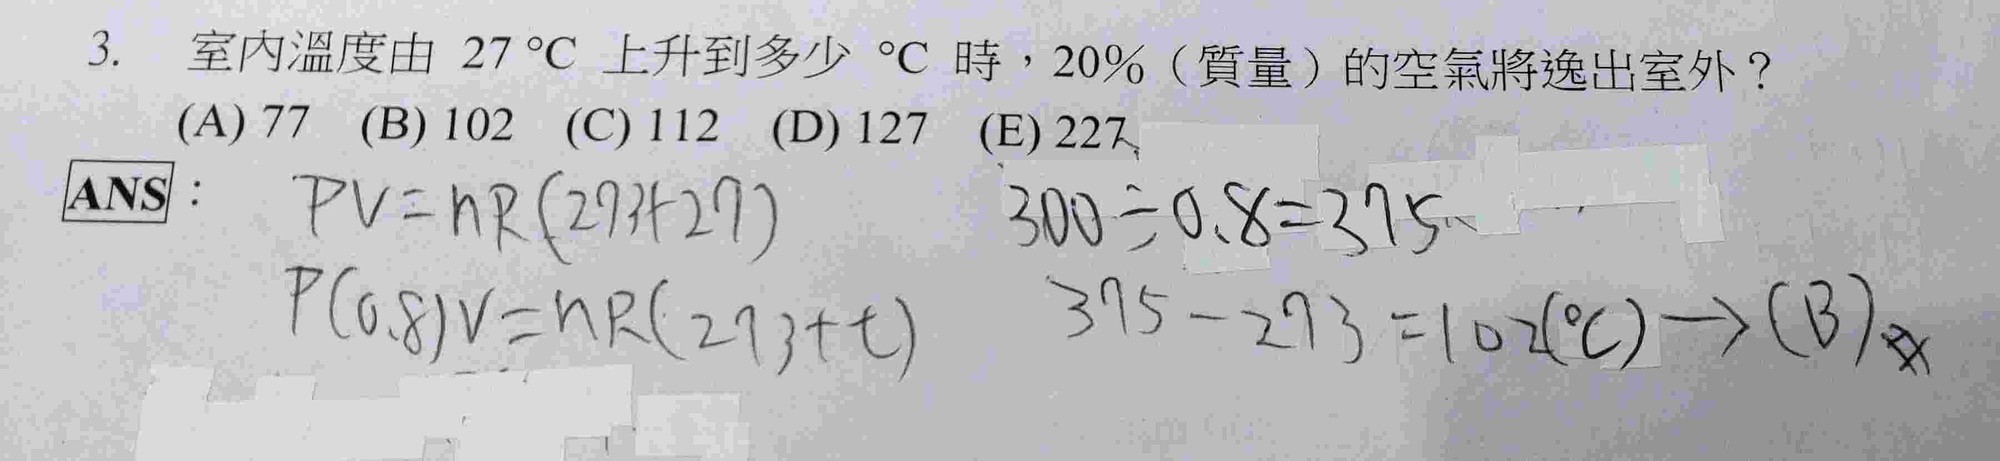 3. 室內溫度由 27 °C 上升到多少 °C 時，20%（質量）的空氣將逸出室外？
(A) 77 (B) 102 (C) 112 (D) 127 (E) 227
ANS：
PV=nR(273+27) 300÷0.8=375
P(0.8)V=nR(273+t) 375-273=102(°C)→(B)